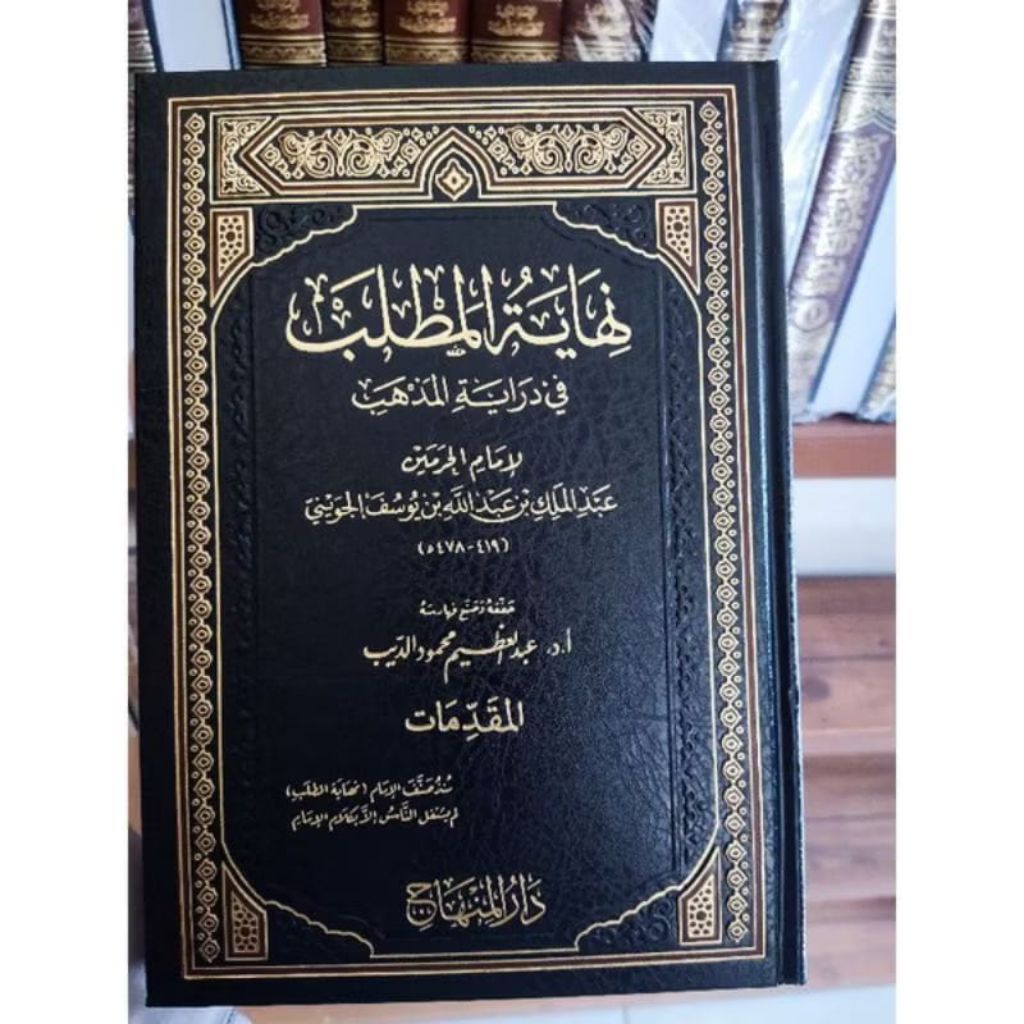 نِهَايَةُ المَطْلَبِ
فِي دِرَايَةِ المَذْهَبِ
لإِمَامِ الحَرَمَيْنِ
عَبْدِ المَلِكِ بْنِ عَبْدِ اللهِ بْنِ يُوسُفَ الجُوَيْنِيّ
(٤١٩-٤٧٨هـ)
حققه وصنع فهارسه
أ.د. عبد العظيم محمود الديب
المقَدِّمَات
مُنْذُ صَنَّفَ الإمَام (نهَايَة المَطلَبِ)
لم يشتغل النَّاسُ إلاَّ بكَلَامِ الإمَامِ
دَارُ المِنْهَاجِ